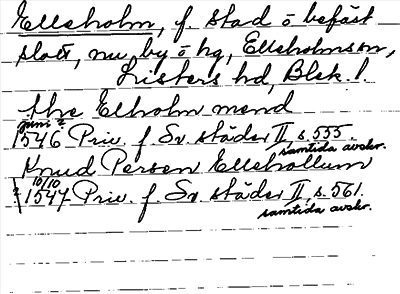 Elleholm, f. stad o befäst
slott, nu by o hg, Elleholmsön,
Listers hd, Blek. l.
the Elholm mend
juni ?
1546 Priv. f. Sv. städer II, s. 555.
samtida avskr.
Knud Persen Ellehollum
10/10
? 1547 Priv. f. Sv. städer II, s. 561.
samtida avskr.